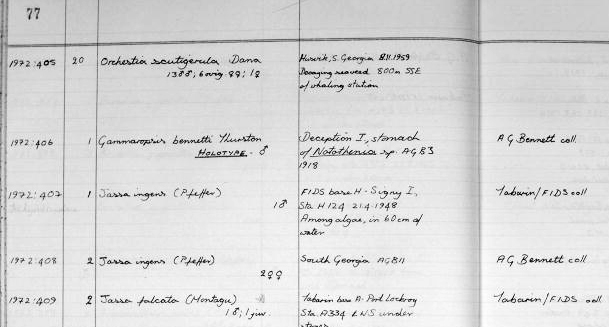 77
1972:405 20 Orchestia scutigerula Dana Husvik, S. Georgia 8.11.1959
13♂♂; 6 ovig. ♀♀; 1♀ Decaying seaweed 800m SSE
of whaling station
1972:406 1 Gammaropsis bennetti Thurston Deception I, stomach A G Bennett coll.
HOLOTYPE - ♂ of Notothenia sp. AGB3
1918
1972:407 1 Jassa ingens (Pfeffer) FIDS base H - Signy I, Tabarin/FIDS coll
1♂ Sta. H 124 21.4.1948
Among algae, in 60cm of
water
1972:408 2 Jassa ingens (Pfeffer) South Georgia AGB11 A G Bennett coll.
2♀♀
1972:409 2 Jassa falcata (Montagu) Tabarin base A - Port Lockroy Tabarin/FIDS coll.
1♂; 1 juv. Sta. A334 LNS under
stones